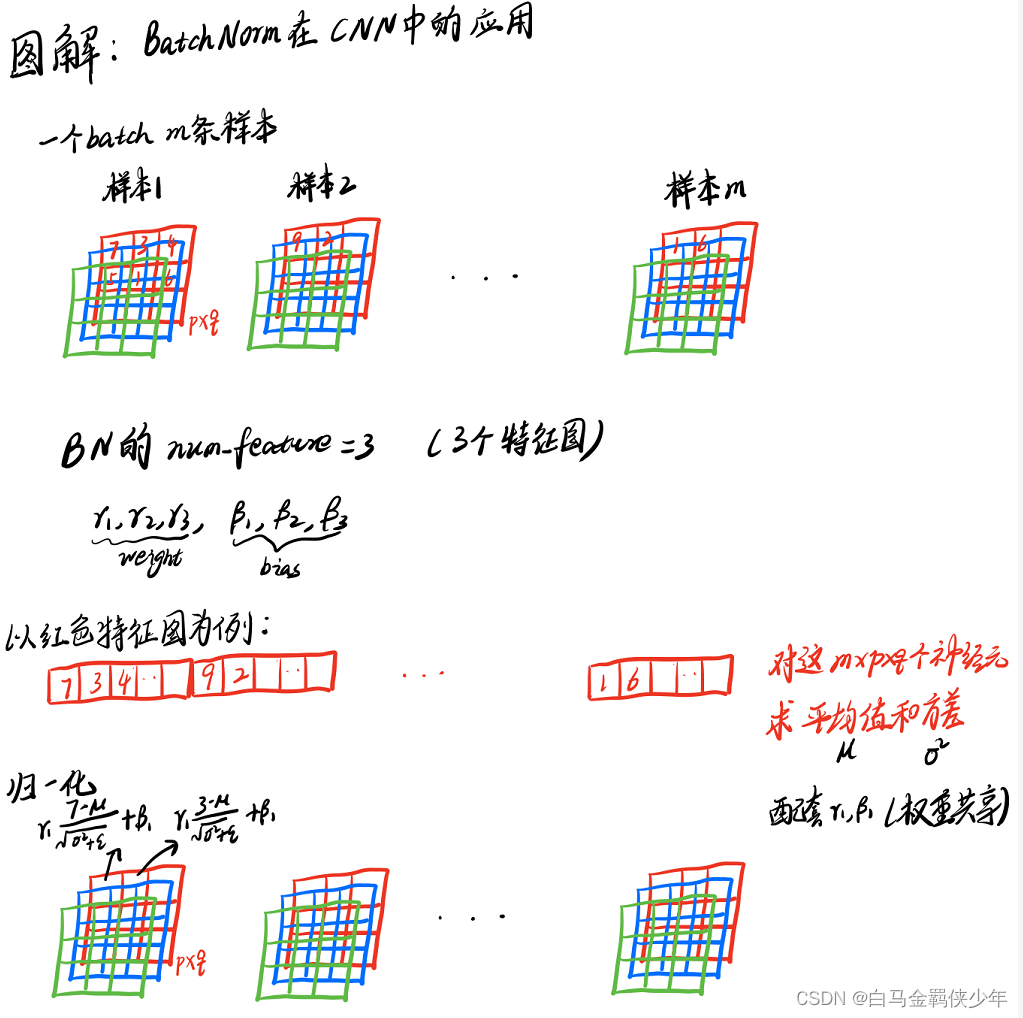 图解：BatchNorm在CNN中的应用
一个batch m条样本
样本1 样本2 样本m
7 3 4 9 2 1 6
5 1 6 . . .
p×q
BN的 num_feature=3 (3个特征图)
γ1,γ2,γ3, β1,β2,β3
weight bias
以红色特征图为例：
7 3 4 ... 9 2 ... ... 1 6 ... 对这m×p×q个神经元
求平均值和方差
μ σ²
归一化
γ1 (7-μ)/√(σ²+ε) +β1 γ1 (3-μ)/√(σ²+ε) +β1 配套γ1,β1 (权重共享)
. . .
p×q
CSDN @白马金羁侠少年